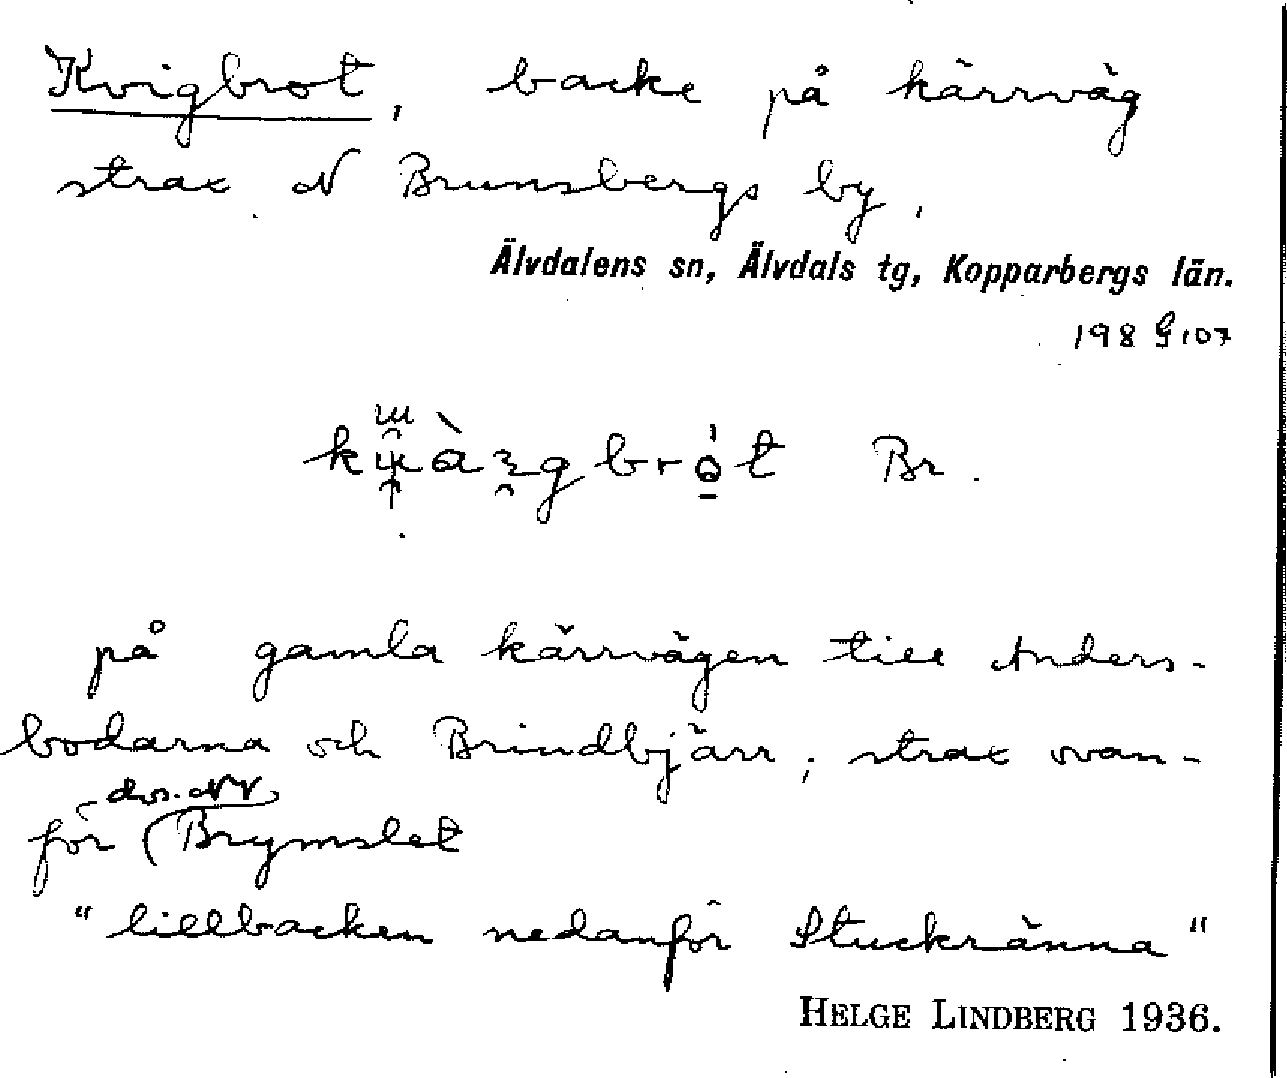 Kvigbrot, backe på kärrväg
strax N Brunsbergs by,
Älvdalens sn, Älvdals tg, Kopparbergs län.
198
Br.
på gamla kärrvägen till Anders-
bodarna och Brindbjärr, strax ovan-
för Brymslet
"lillbacken nedanför Stuckränna"
HELGE LINDBERG 1936.